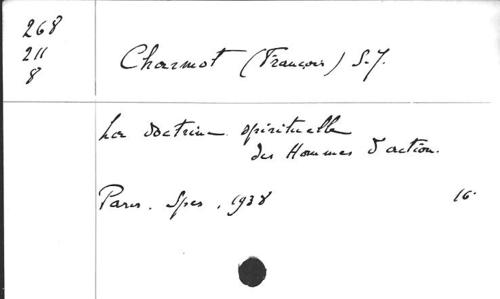 268
211
8
Charmot (François) S.J.
La doctrine spirituelle
des Hommes d'action.
Paris. Spes, 1938 16